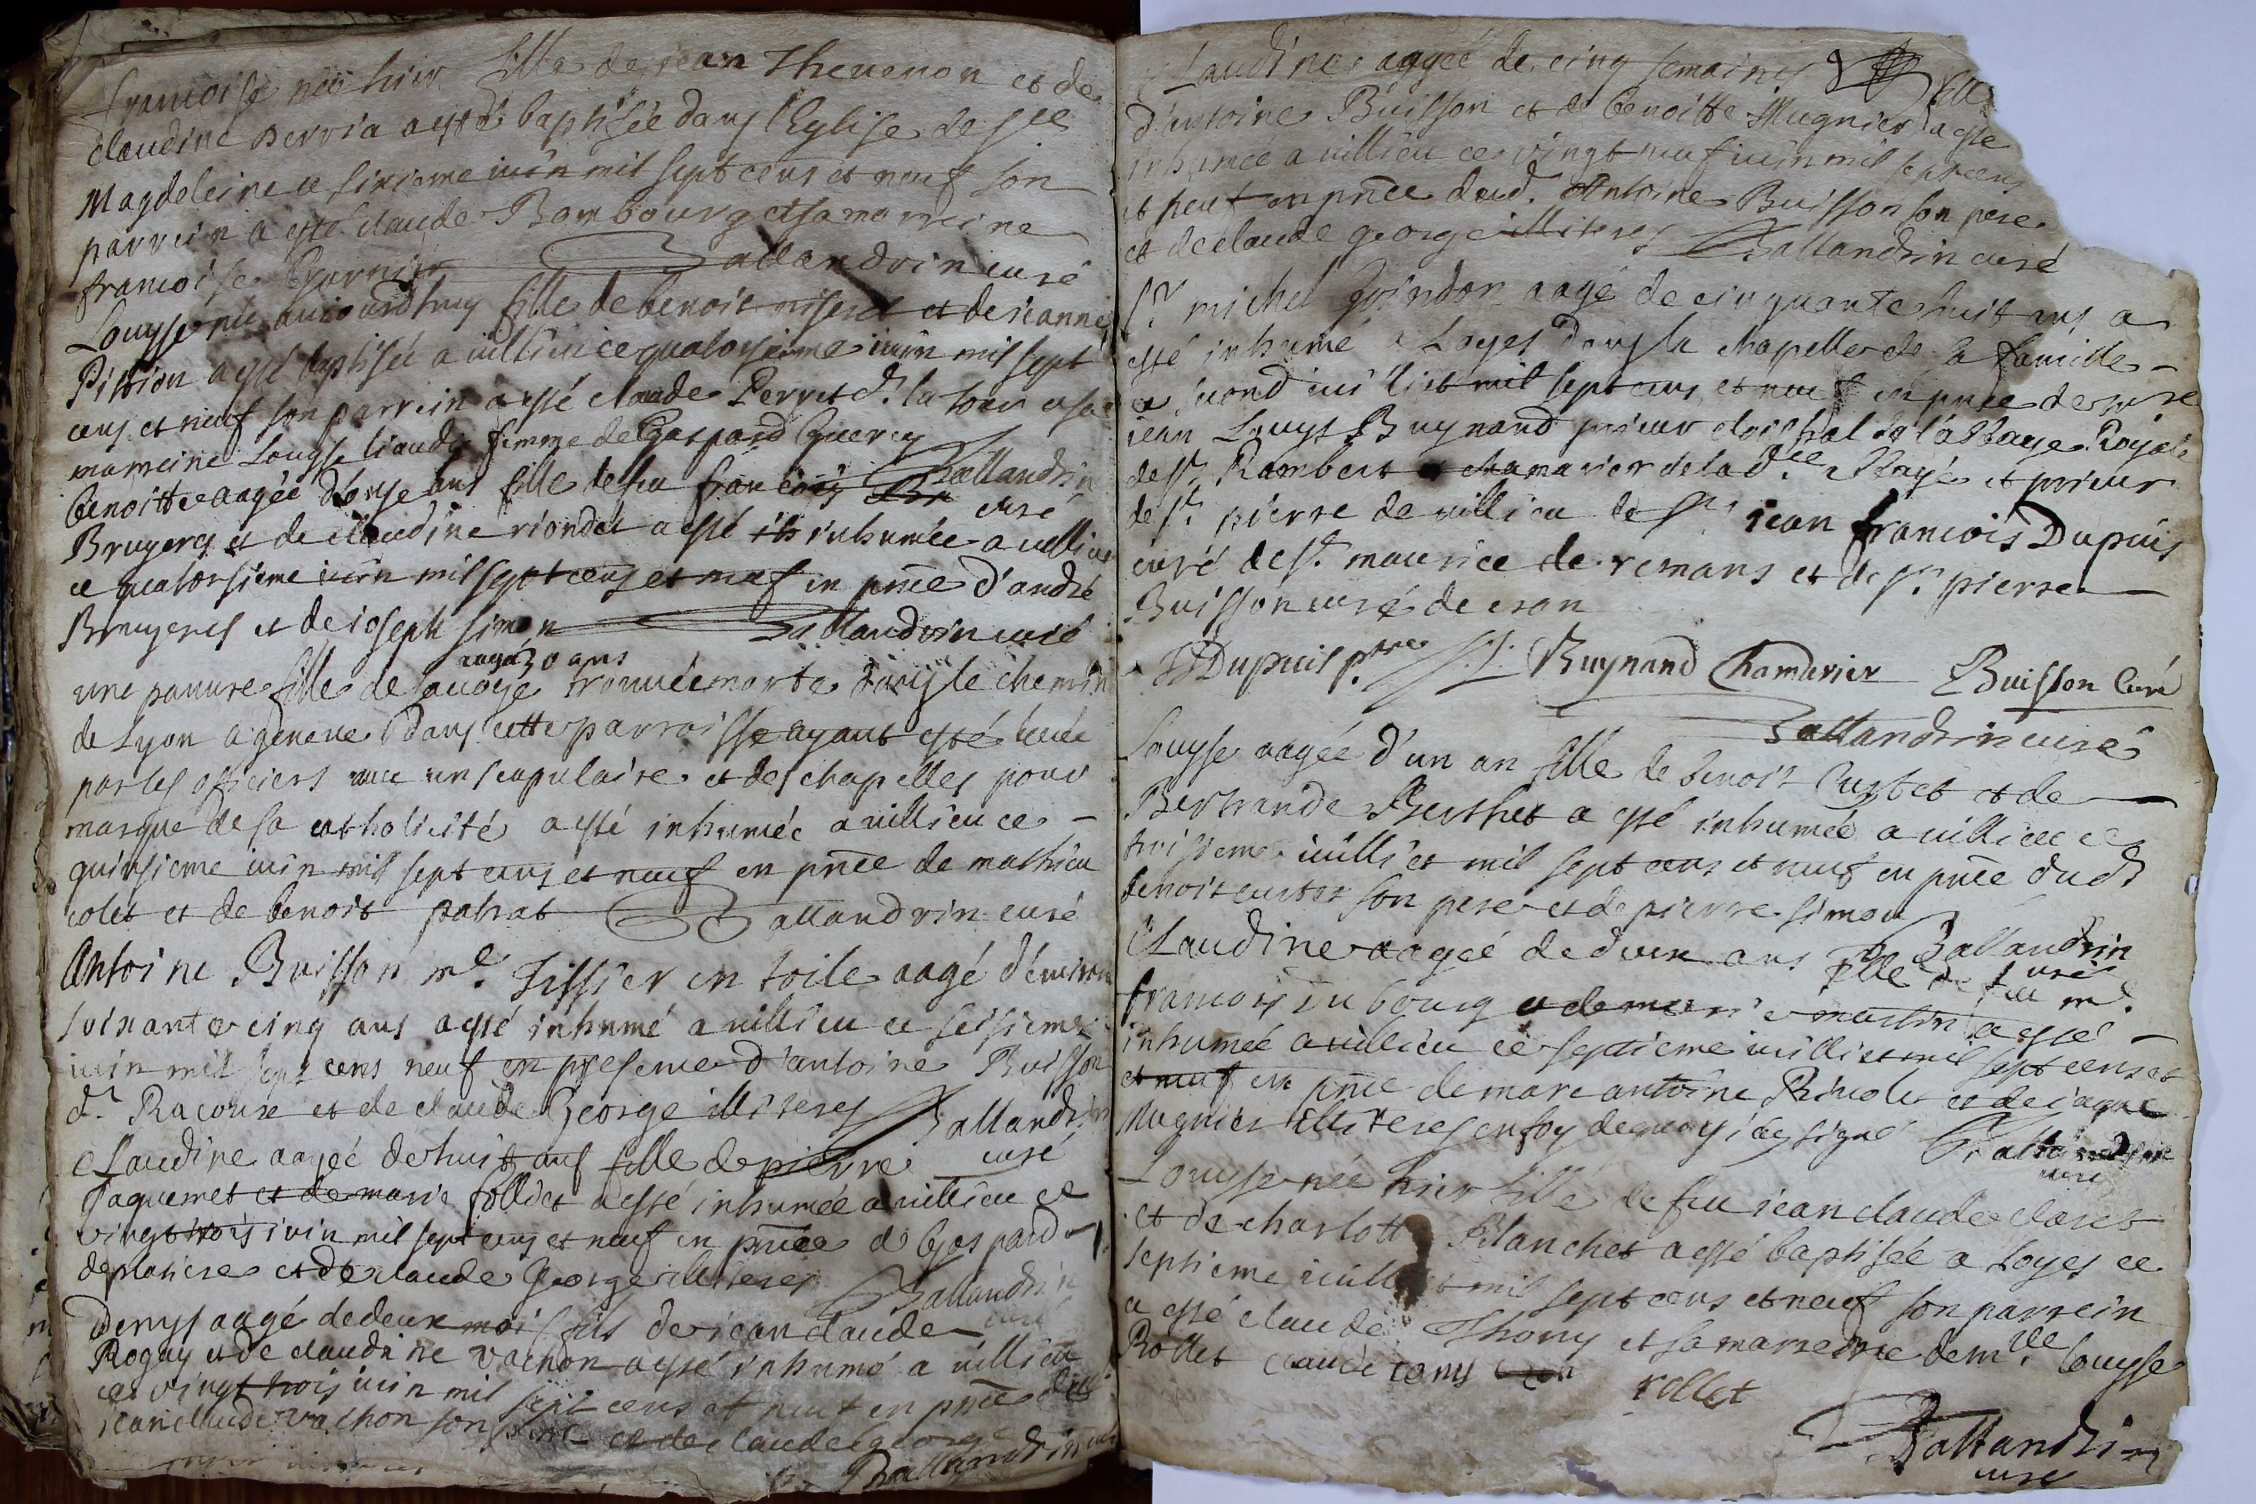 francoise née hier fille de jean Thevenon et de
claudine Perria a esté baptisée dans l'Eglise de ste
Magdeleine ce sixieme iuin mil sept cens et neuf son
parrein a esté claude Bombourg et sa marreine
francoise Garnier Ballandrin curé
Louyse née aujourdhuy fille de benoit et de ieanne
Pithion a esté baptisée a uillieu ce quatorsieme iuin mil sept
cens et neuf son parrein a esté claude Perret dt la tour et sa
marreine Louyse liaudy femme de Gaspard Guercy
Ballandrin
benoitte aagée d'onse ans fille de feu francois
curé
Brugeres et de claudine riondet a esté inhumée a uillieu
ce quatorsieme iuin mil sept cens et neuf en pnce d'andré
Brugeres et de ioseph simon Ballandrin curé
aagée 30 ans
une pauure fille de sauoye trouuée morte dans le chemin
de Lyon a geneue dans cette parroisse ayant esté leuée
par les officiers auec un scapulaire et des chapelles pour
marque de sa catholicité a esté inhumée a uillieu ce
quinsieme iuin mil sept cens et neuf en pnce de mathieu
colet et de benoit pahat Ballandrin curé
Antoine Buisson me Tissier en toile aagé d'enuiron
soixante cinq ans a esté inhumé a uillieu ce seisieme
iuin mil sept cens neuf en presence d'antoine Buisson
dt Racoux et de claude George illiteres Ballandrin
Claudine aagée de huit ans fille de pierre curé
Jaquemet et de marie follict a esté inhumée a uillieu ce
vingt trois iuin mil sept cens et neuf en pnce de Gaspard
deplatiere et de claude George illiteres
Ballandrin
Denys aagé de deux mois fils de iean claude curé
Roguy et de claudine vachon a esté inhumé a uillieu
ce vingt trois iuin mil sept cens et neuf en pnce dud
iean claude vachon son et de claude george
Ballandrin
Claudine aagée de cinq semaines fille
d'antoine Buisson et de benoitte Mugnier a esté
inhumée a uillieu ce vingt neuf iuin mil sept cens
et neuf en pnce dud. Antoine Buisson son pere
et de claude george illiteres Ballandrin curé
Sr michel Guindon aagé de cinquante huit ans a
esté inhumé a Loyes dans la chapelle de sa famille
ce second iuillet mil sept cens et neuf en pnce de mre
iean Louys Buynand prieur cloistral de l'abbaye Royale
de St Rambert chamarier de lad.te abbaye et prieur
de St pierre de uillieu de Sr iean francois Dupuis
curé de St maurice de remans et de Sr pierre
Buisson curé de cran
Dupuis ptre J. L. Buynand Chamarier Buisson Curé
Ballandrin curé
Louyse aagée d'un an fille de benoit Curtet et de
Bertrande Berthet a esté inhumée a uillieu ce
troisieme iuillet mil sept cens et neuf en pnce dudt
benoit curtet son pere et de pierre simon
Ballandrin
Claudine aagée de deux ans fille de feu me
curé
francois du bourg et de marie martin a esté
inhumée a uillieu ce septieme iuillet mil sept cens et
et neuf en pnce de marc antoine Rinolet et de iaque
Mugnier illiteres en foy de quoy i'ay signé Ballandrin
curé
Louyse née hier fille de feu iean claude claret
et de charlotte Blanchet a esté baptisée a Loyes ce
septieme iuillet mil sept cens et neuf son parrein
a esté claude Thony et sa marreine demlle Louyse
Rollet claude tony rollet
Ballandrin
curé